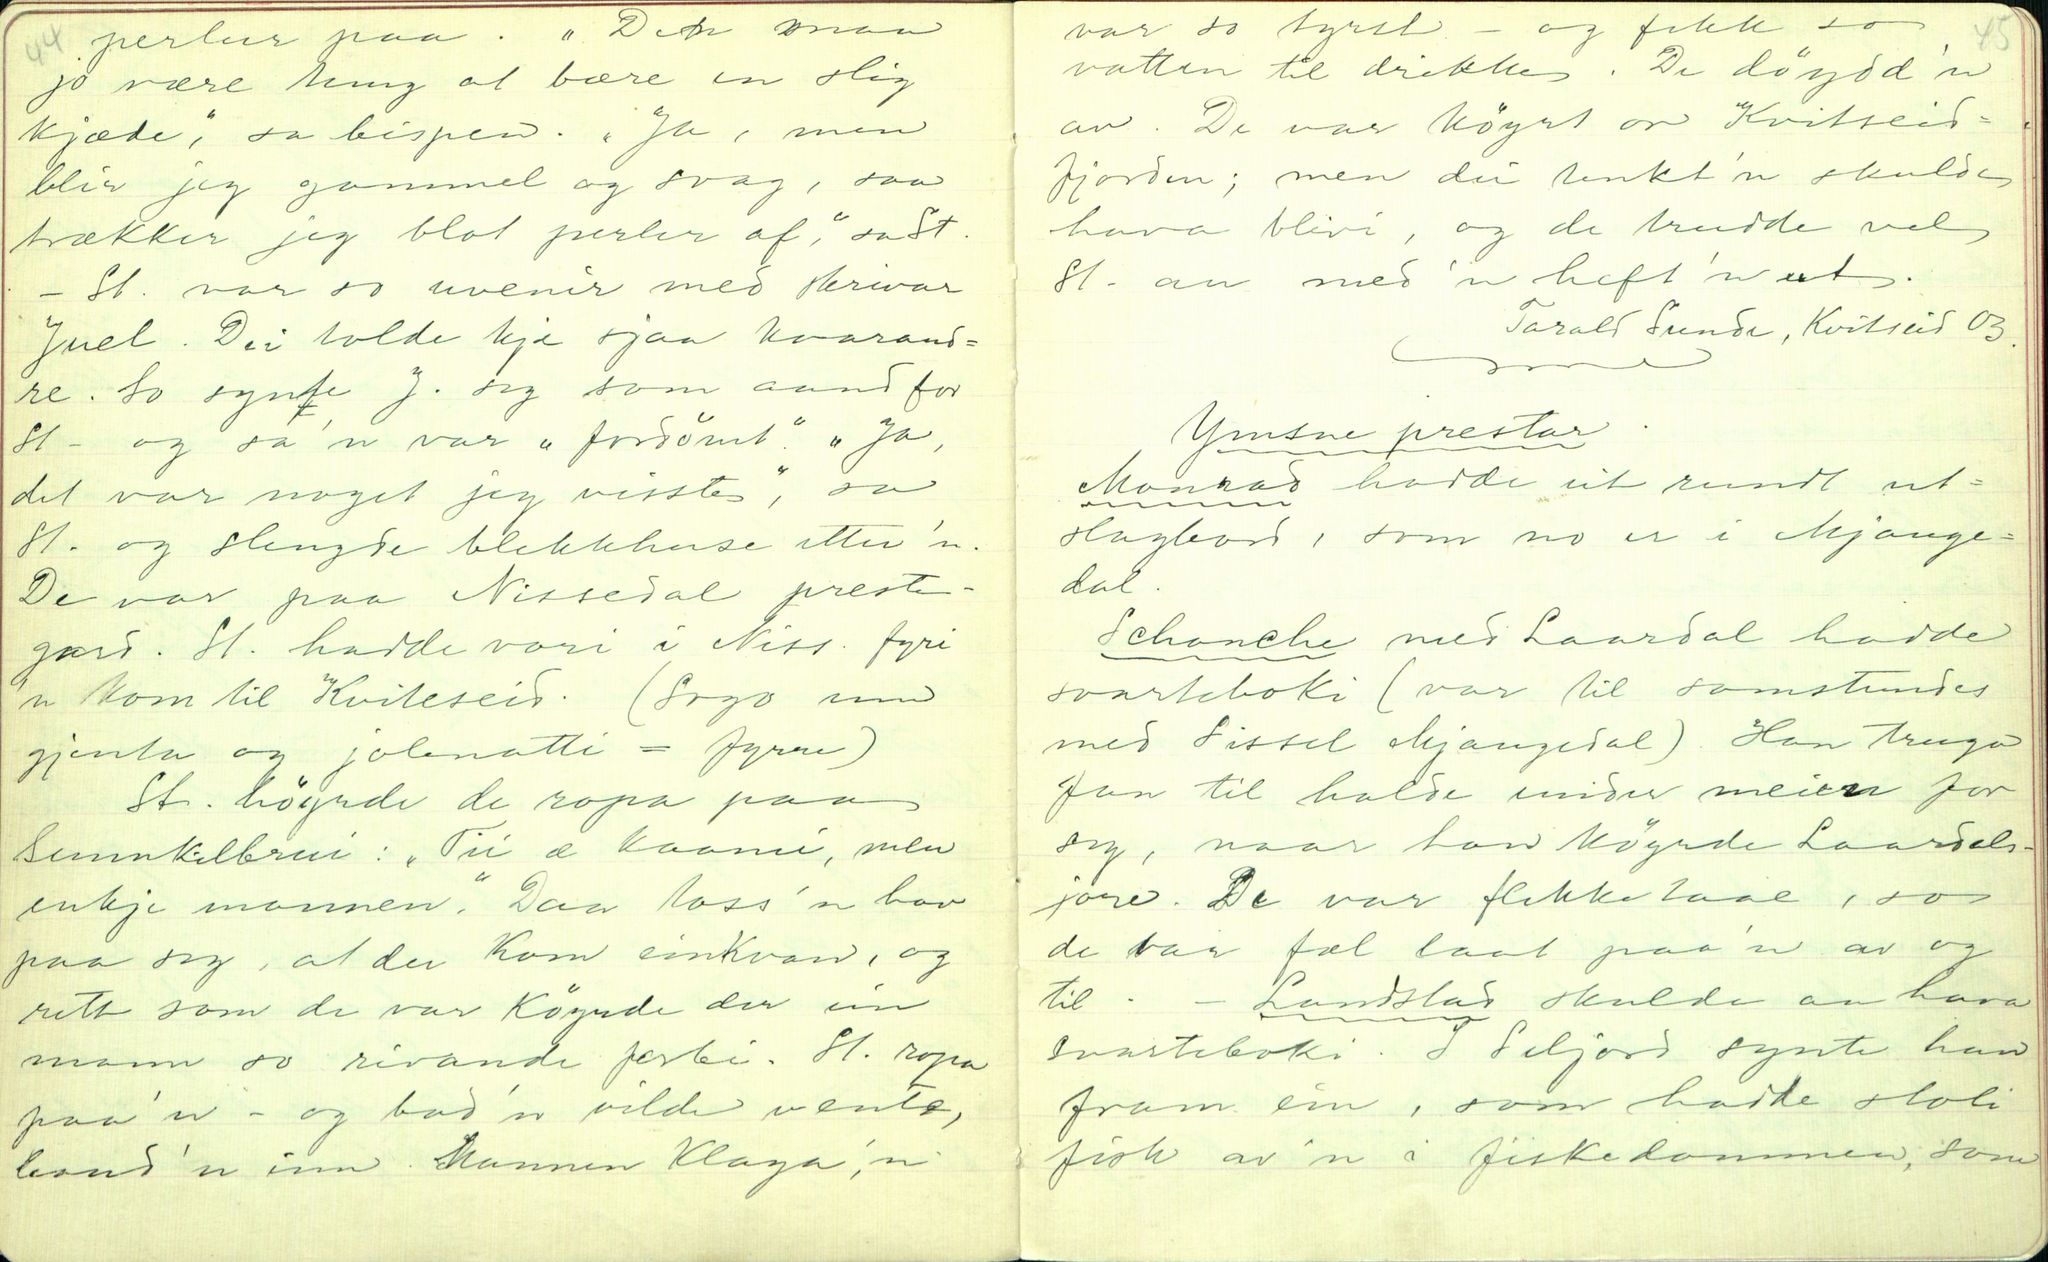 44
perler paa. "Den maa
jo være tung at bære en slig
kjæde", sa bispen. "Ja, men
blir jeg gammel og svag, saa
trækker jeg blot perler af", sa St.
- St. var so uvenir med skrivar
Juel. Dei tolde kje sjaa kvarand=
re. So synte J. seg som aand for
St - og sa 'n var "fordömt". "Ja,
det var noget jeg visste", sa
St. og slengde blekkhuse etter 'n.
De var paa Nissedal preste-
gard. St. hadde vori i Niss. fyri
'n kom til Kviteseid. (Sogo um
gjenta og jolenatti = fyrre)
St. höyrde de ropa paa
Sunnkilbrui: "Tii æ komi, men
inkje mannen". Daa toss 'n hav
paa seg, at der kom einkvan, og
rett som de var köyrde der ein
mann so rivande forbi. St. ropa
paa 'n - og bad 'n vilde vente,
baud 'n inn. Mannen klaga, 'n
45
var so tyrst - og fekk so
vatten til drikke. De döyvd 'n
av. De var köyrt or Kvitseid=
fjorden; men dei tenkt 'n skulde
hava blivi, og de trudde vel
St. au med 'n heft 'n ut.
Tarald Sunde, Kvitseid 03.
Ymsne prestar.
Monrad hadde eit rundt ut=
slagbord, som no er i Mjonge=
dal.
Schanche med Laardal hadde
svarteboki (var til samstundes
med Sissel Mjaugedal). Han truga
fan til halde under meien for
seg, naar han köyrde Laardals-
jore. De var flekketaae, so
de var fæl laat paa 'n av og
til. - Landstad skulde au hava
svarteboki. I Seljord synte han
fram ein, som hadde stoli
fisk av 'n i fiskedammen, som